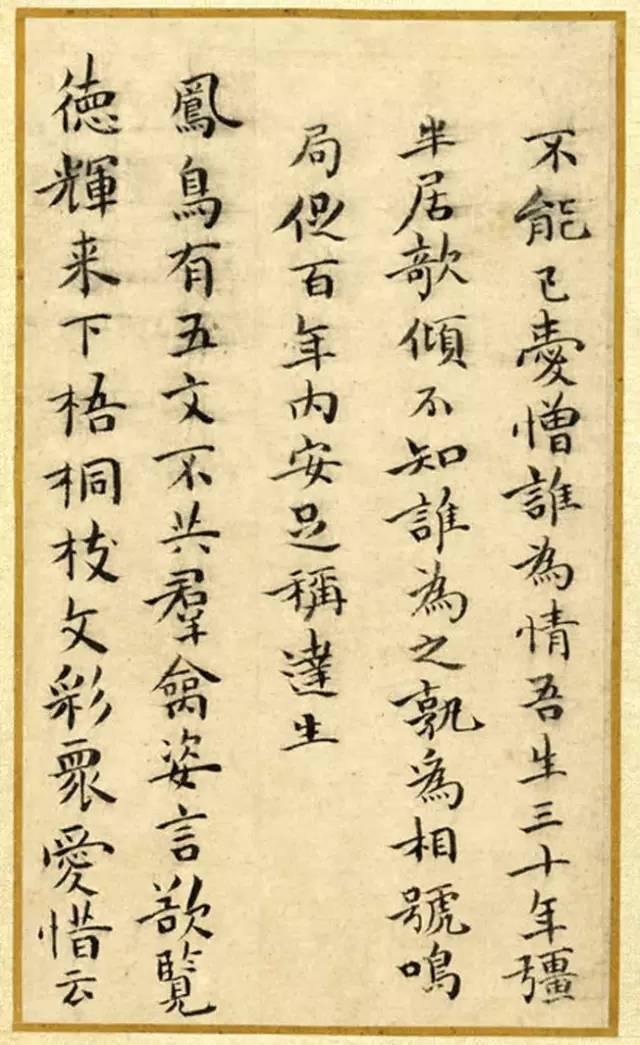 不能已憂憎誰為情吾生三十年彊
半居欹傾不知誰為之孰為相號鳴
局促百年内安足稱達生
鳳鳥有五文不共羣禽姿言欲覽
徳輝来下梧桐枝文彩眾愛惜云